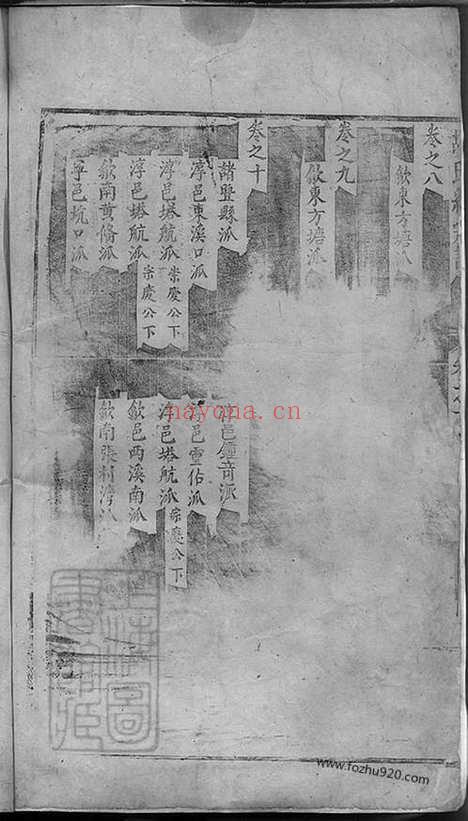 卷之八
歙東方塘派
卷之九
歙東方塘派
卷之十
諸暨縣派
淳邑東溪口派
淳邑塔航派 崇慶公下
淳邑塔航派 宗慶公下
歙南黃備派
寧邑坑口派
淳邑鍾奇派
淳邑雲佑派
淳邑塔航派 宗慶公下
歙邑西溪南派
歙南張村灣派
nayona.cn
www.fozhu920.com